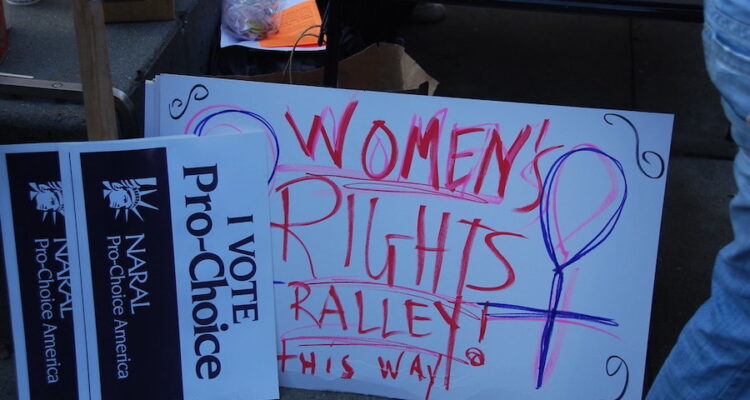 WOMEN'S
RIGHTS
RALLEY!
THIS WAY!
I VOTE
Pro-Choice
NARAL
Pro-Choice America
NARAL
Pro-Choice America